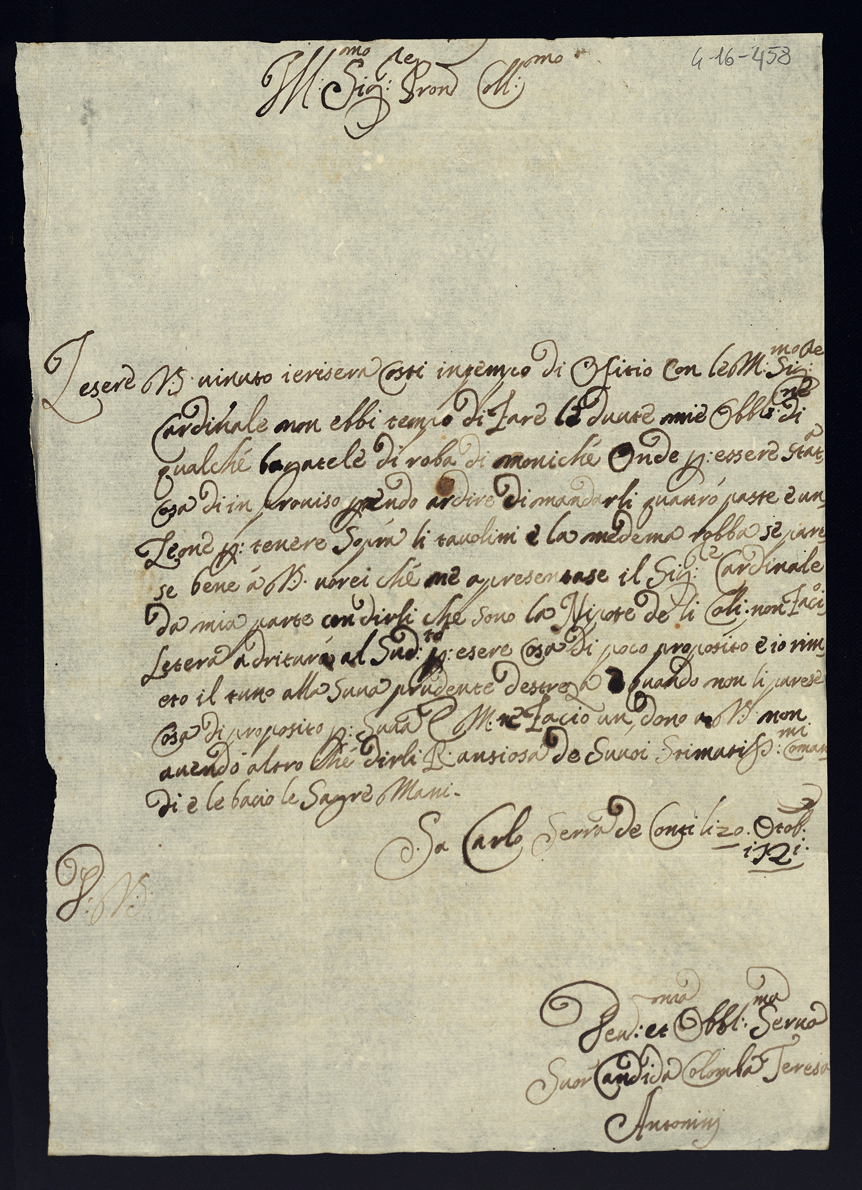 4-16-458
Ill:mo Sig:re Pron Coll:mo
Lesere V.S. uinuto ierisera Costi in tempo di Ofitio Con le M: mo Sig:re
Cardinale non ebbi tempo di Fare le duute mie Obblig:ne di
qualche bagatele di roba di moniche Onde p: essere stata
Cosa di in prouiso prendo ardire di mandarli quatro paste e un
Leone p: tenere Sopra li tauolini e la medema robba se pare
se bene a V.S. uorei che me apresentase il Sig:re Cardinale
da mia parte con dirli che sono la Nipote de li Colli: non Facio
Letera adritura al Sud:to p: esere Cosa di poco proposito e io rim
eto il tutto alla Suua prudente destreza e quando non li parese
Cosa di proposito p: Suua E M: ne Facio un dono a V.S. non
auendo altro che dirli R: ansiosa de Suuoi Stimatiss:mi Coman
di e le bacio le Sagre Mani.
Sa Carlo Serra de Conti li 20. Otob.
1721
P: V.S.
Deu:ma et Obbl:ma Serua
Suor Candida Colomba Teresa
Antonini